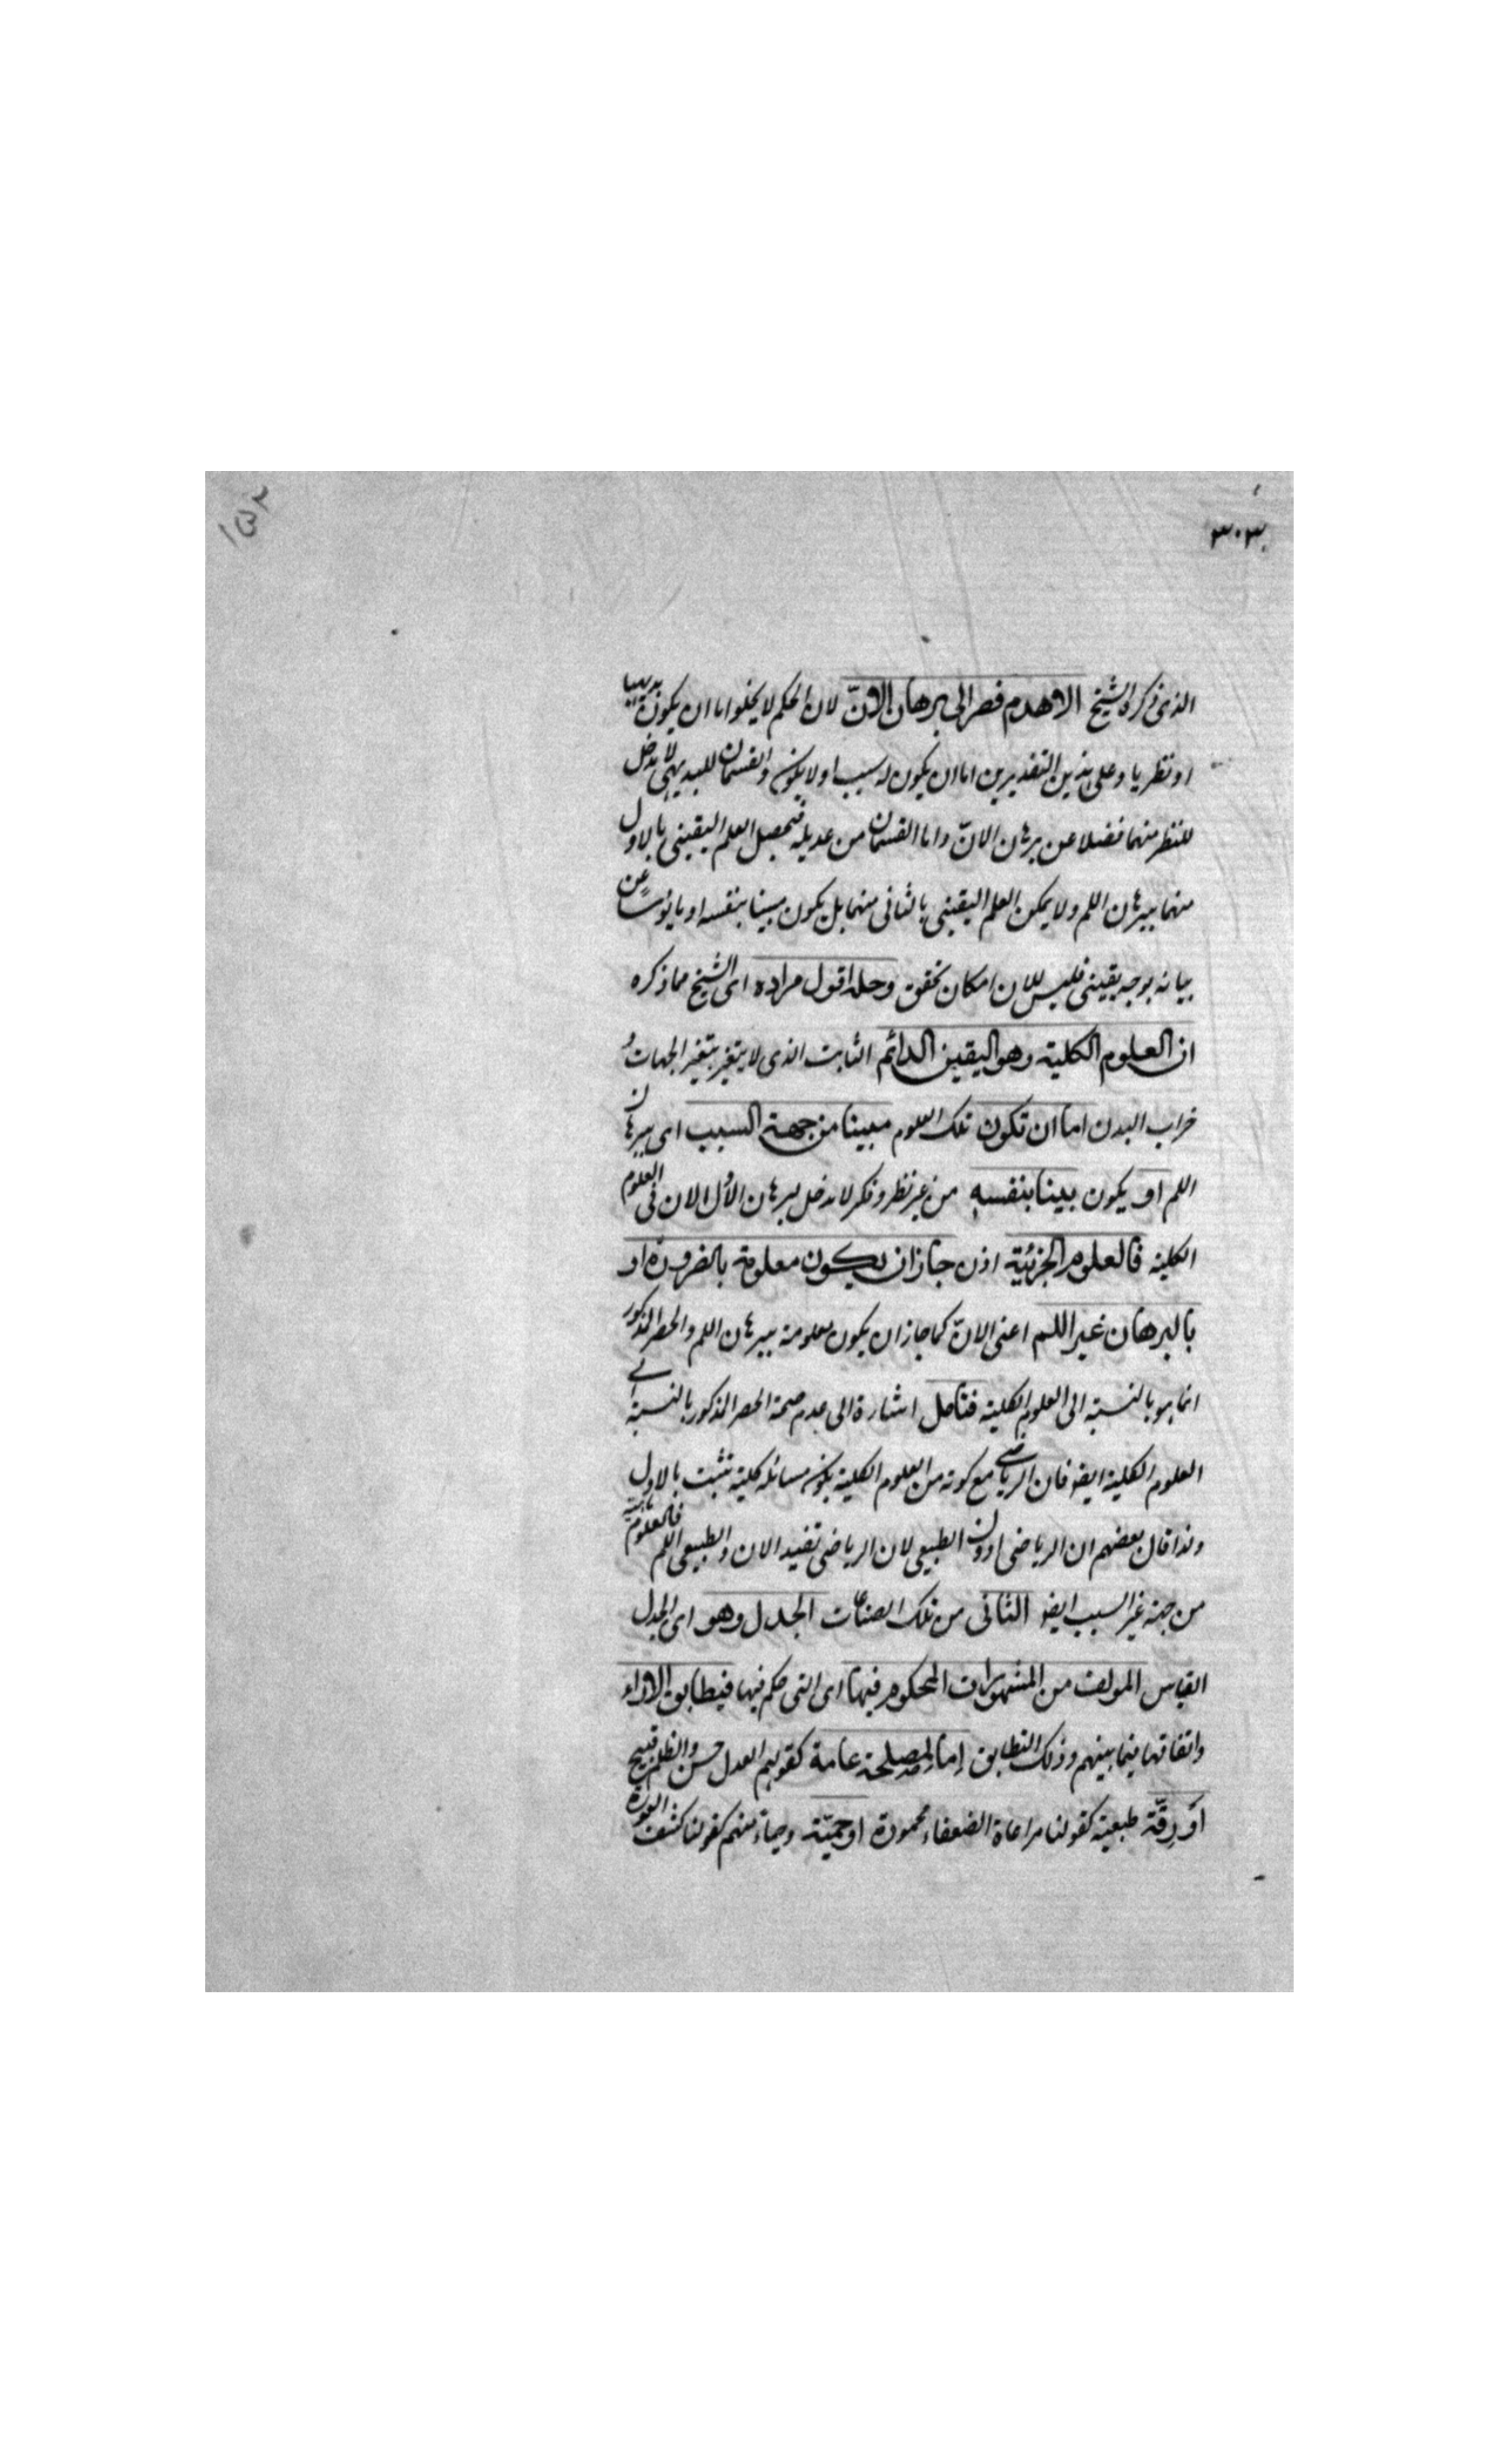 ١٥٢
٣٠٣
الذى ذكره الشيخ الا هدم قصر الى برهان الانّ لان الحكم لا يخلوا اما ان يكون بديهيا
او نظريا وعلى هذين التقديرين اما ان يكون له سبب او لا يكون والقسمان للبديهى لا يدخل
للنظر منهما فضلا عن برهان الانّ واما القسمان من عديله فيحصل العلم اليقينى بالاول
منهما ببرهان اللم ولا يمكن العلم اليقينى بالثانى منهما بل يكون مبينا بنفسه او مايوسا عن
بيانه بوجه يقينى فليس للان امكان تحقق وحله اقول مراده اى الشيخ مما ذكره
ان العلوم الكلية وهو اليقين الدائم الثابت الذى لا يتغير بتغير الجهات و
خراب البدن اما ان تكون تلك العلوم مبينا من جهة السبب اى ببرهان
اللم او يكون بينا بنفسه من غير نظر وفكر لا دخل لبرهان الان فى العلوم
الكلية فالعلوم الجزئية اذن جاز ان يكون معلومة بالضرورة او
بالبرهان غير اللم اعنى الانّ كما جاز ان يكون معلومة ببرهان اللم والحصر المذكور
انما هو بالنسبة الى العلوم الكلية فتامل اشارة الى عدم صحة الحصر المذكور بالنسبة الى
العلوم الكلية ايضو فان الرياضى مع كونه من العلوم الكلية يكون مسائله كلية تثبت بالاول
ولذا قال بعضهم ان الرياضى اوون الطبيعى لان الرياضى تفيد الان والطبيعى اللم فالعلوم
من جهة غير السبب ايضو الثانى من تلك الصناعات الجدل وهو اى الجدل
القياس المولف من المشهورات المحكوم فيها اى التى حكم فيها فيطابق الاراء
واتفاقها فيما بينهم وذلك التطابق اما لمصلحة عامة كقولهم العدل حسن والظلم قبيح
او رقّة طبعية كقولنا مراعاة الضعفاء محمودة او حميّة وحياء منهم كقولنا كشف العورة